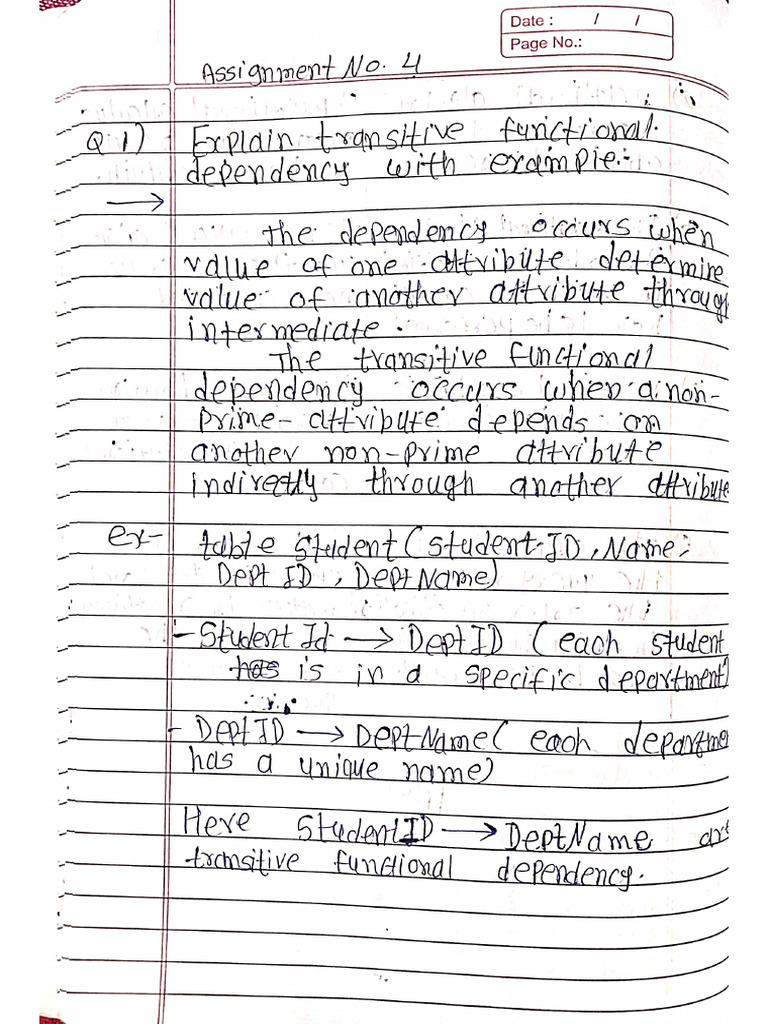 Date : / /
Page No.:
Assignment No. 4
Q 1) Explain transitive functional.
dependency with example:-
→
The dependency occurs when
value of one attribute determine
value of another attribute throug
intermediate.
The transitive functional
dependency occurs when a non-
prime-attribute depends on
another non-prime attribute
indirectly through another attribute
ex- table Student (Student-ID, Name,
Dept ID, DeptName)
- Student Id → DeptID (each student
has is in a specific department)
- DeptID → DeptName (each departme
has a unique name)
Here StudentID → DeptName are
transitive functional dependency.